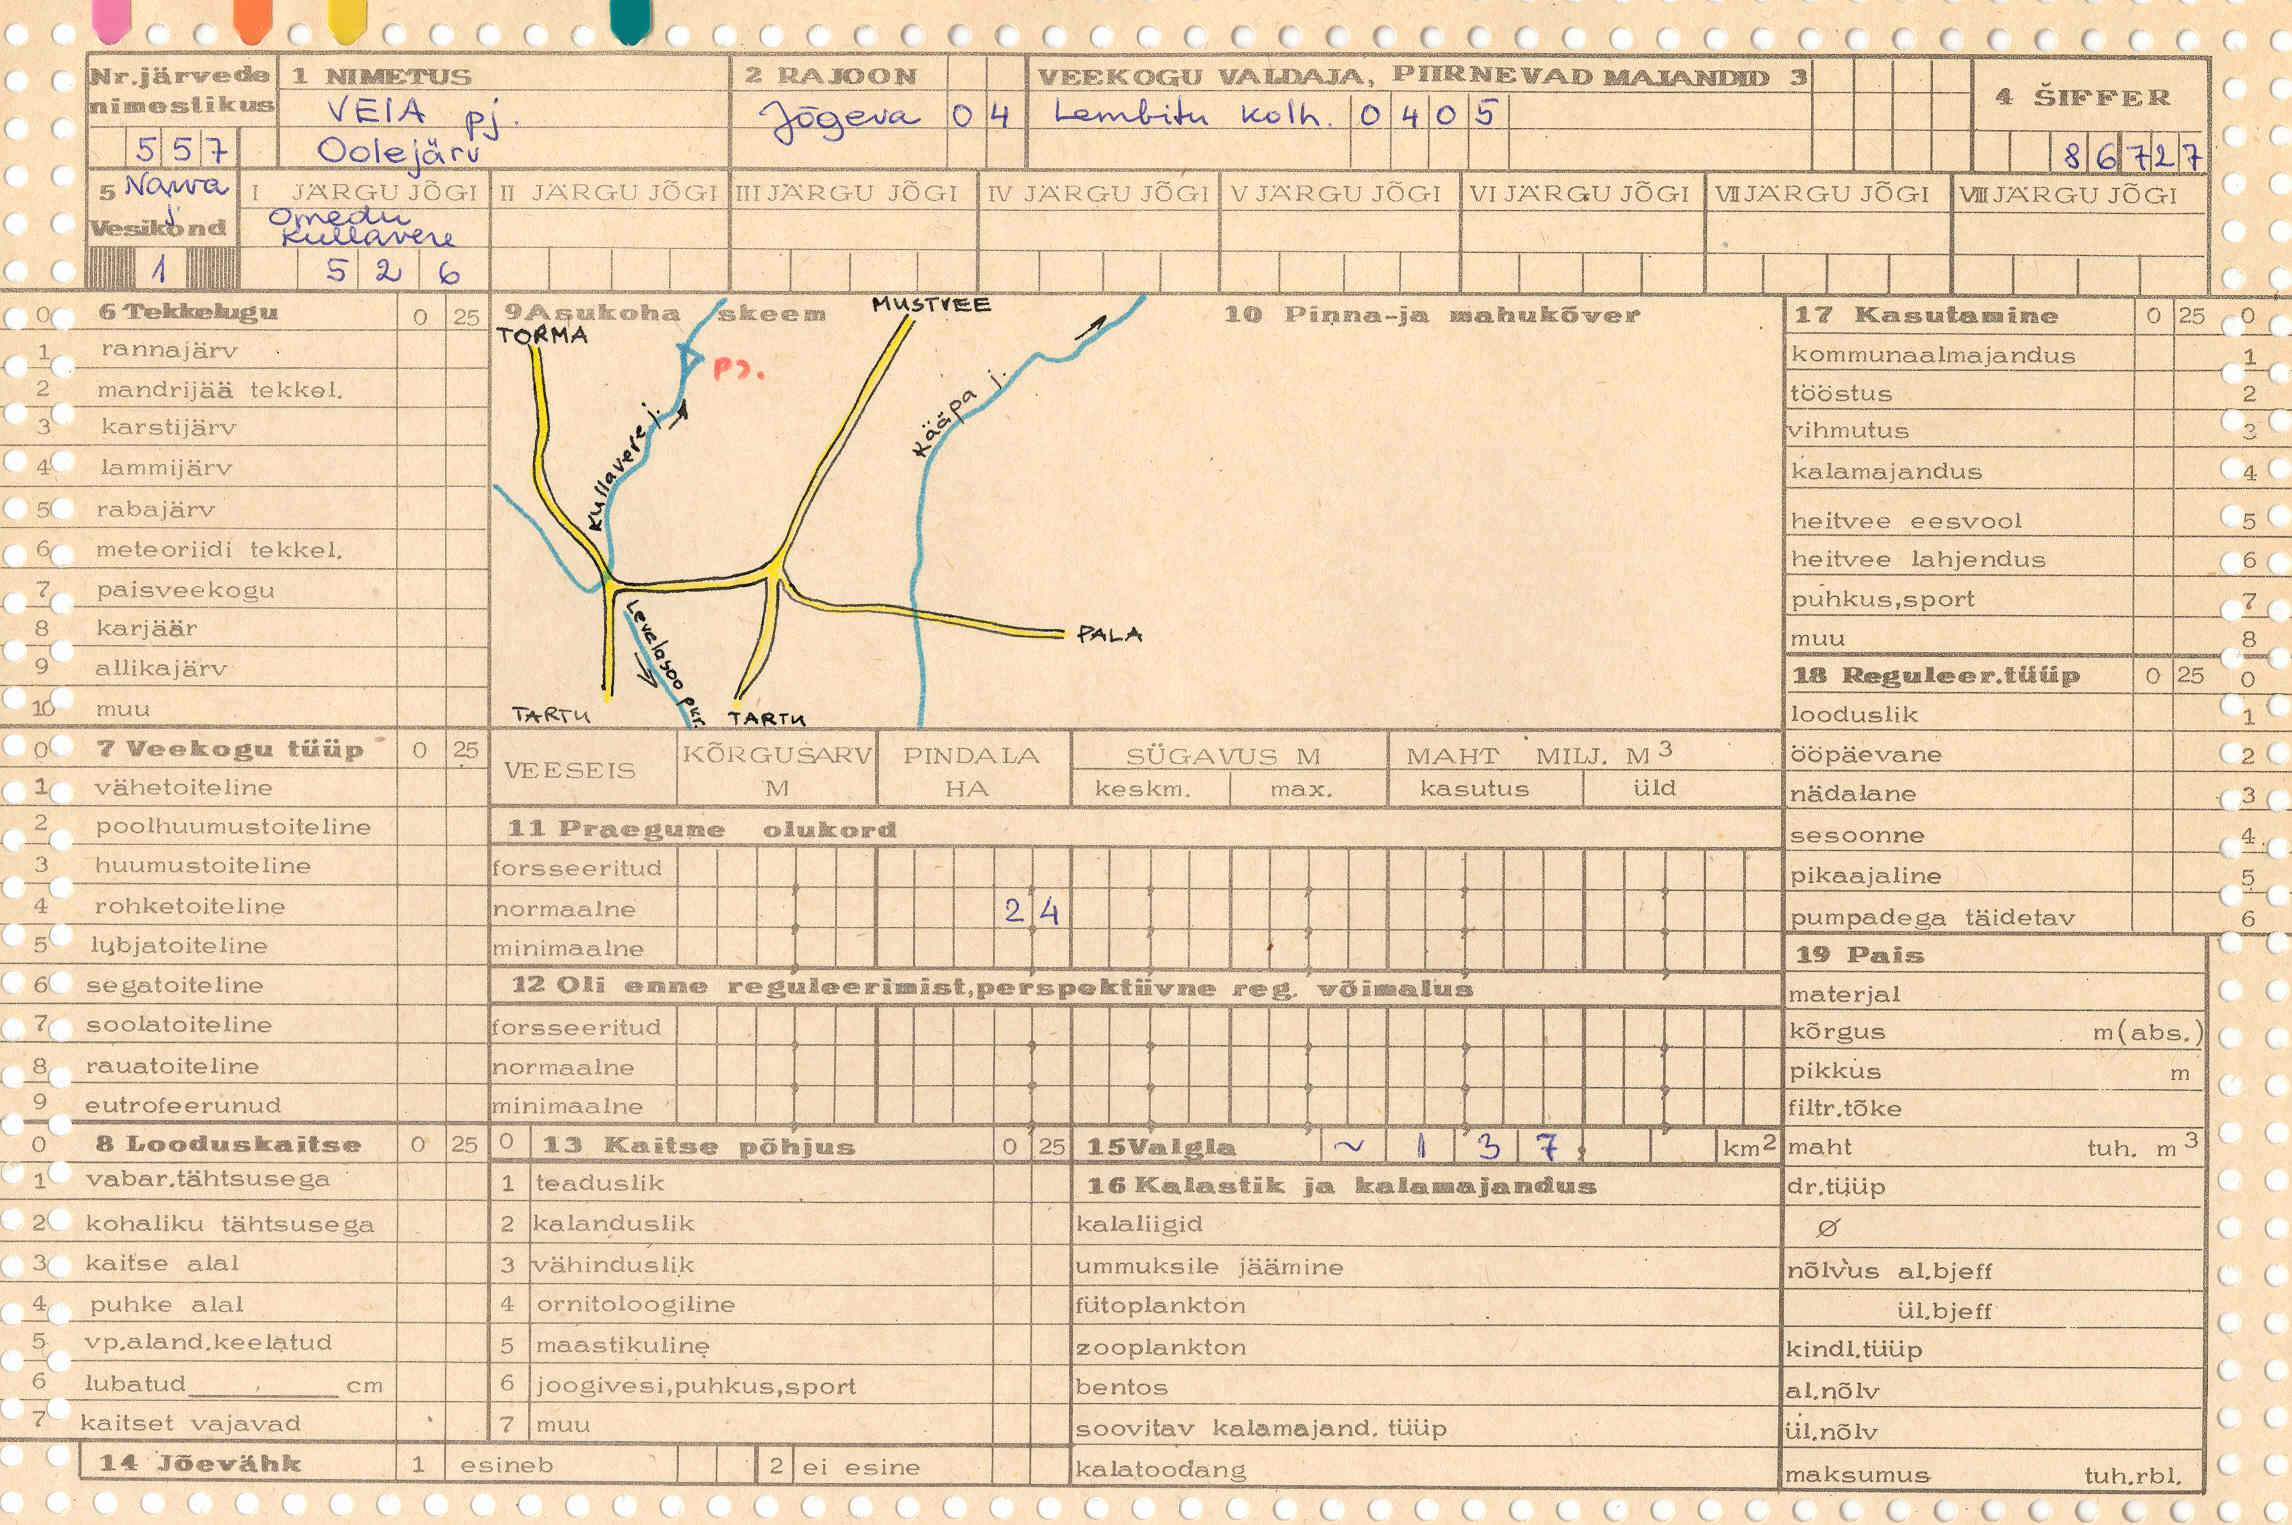 Nr.järvede nimestikus
557
1 NIMETUS
VEIA pj.
Oolejärv
2 RAJOON
Jõgeva 04
VEEKOGU VALDAJA, PIIRNEVAD MAJANDID 3
Lembitu kolh. 0405
4 ŠIFFER
86727
5 Narva j.
Vesikond
1
I JÄRGU JÕGI
Omedu
Kullavere
526
II JÄRGU JÕGI
III JÄRGU JÕGI
IV JÄRGU JÕGI
V JÄRGU JÕGI
VI JÄRGU JÕGI
VII JÄRGU JÕGI
VIII JÄRGU JÕGI
0 6 Tekkelugu 0 25
1 rannajärv
2 mandrijää tekkel.
3 karstijärv
4 lammijärv
5 rabajärv
6 meteoriidi tekkel.
7 paisveekogu
8 karjäär
9 allikajärv
10 muu
0 7 Veekogu tüüp 0 25
1 vähetoiteline
2 poolhuumustoiteline
3 huumustoiteline
4 rohketoiteline
5 lubjatoiteline
6 segatoiteline
7 soolatoiteline
8 rauatoiteline
9 eutrofeerunud
0 8 Looduskaitse 0 25
1 vabar.tähtsusega
2 kohaliku tähtsusega
3 kaitse alal
4 puhke alal
5 vp.aland.keelatud
6 lubatud cm
7 kaitset vajavad
9 Asukoha skeem
TORMA
MUSTVEE
pj.
Kullavere j.
Kääpa j.
Levalasoo pkr.
PALA
TARTU
TARTU
10 Pinna-ja mahukõver
VEESEIS
KÕRGUSARV M
PINDALA HA
SÜGAVUS M
keskm. max.
MAHT MILJ. M3
kasutus üld
11 Praegune olukord
forsseeritud
normaalne 24
minimaalne
12 Oli enne reguleerimist,perspektiivne reg. võimalus
forsseeritud
normaalne
minimaalne
0 13 Kaitse põhjus 0 25
1 teaduslik
2 kalanduslik
3 vähinduslik
4 ornitoloogiline
5 maastikuline
6 joogivesi,puhkus,sport
7 muu
14 Jõevähk 1 esineb 2 ei esine
15 Valgla ~ 137, km2
16 Kalastik ja kalamajandus
kalaliigid
ummuksile jäämine
fütoplankton
zooplankton
bentos
soovitav kalamajand. tüüp
kalatoodang
17 Kasutamine 0 25 0
kommunaalmajandus 1
tööstus 2
vihmutus 3
kalamajandus 4
heitvee eesvool 5
heitvee lahjendus 6
puhkus,sport 7
muu 8
18 Reguleer.tüüp 0 25 0
looduslik 1
ööpäevane 2
nädalane 3
sesoonne 4
pikaajaline 5
pumpadega täidetav 6
19 Pais
materjal
kõrgus m(abs.)
pikkus m
filtr.tõke
maht tuh. m3
dr.tüüp
Ø
nõlvus al.bjeff
ül.bjeff
kindl.tüüp
al.nõlv
ül.nõlv
maksumus tuh.rbl.